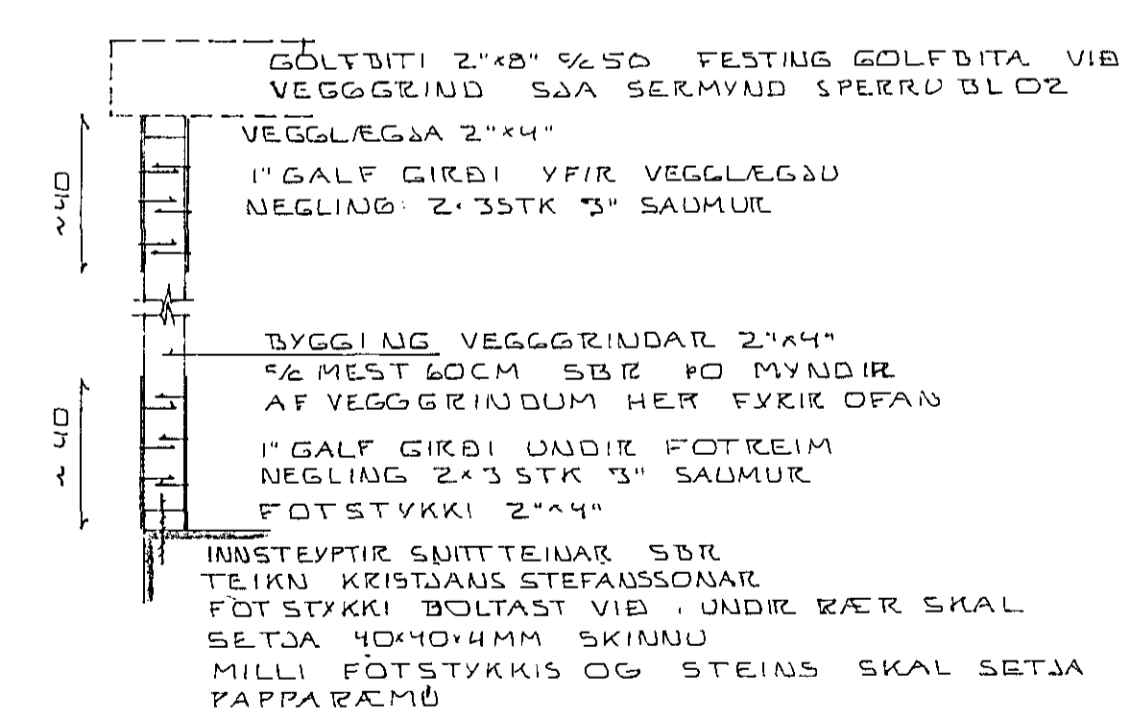 GÓLFBITI 2"×8" c/c 50 FESTING GOLFBITA VIÐ
VEGGGRIND SJA SERMYND SPERRU BL 02
VEGGLÆGJA 2"×4"
1" GALF GIRÐI YFIR VEGGLÆGJU
NEGLING: 2·3STK 3" SAUMUR
~40
BYGGING VEGGGRINDAR 2"×4"
c/c MEST 60CM SBR ÞO MYNDIR
AF VEGGGRINDUM HER FYRIR OFAN
1" GALF GIRÐI UNDIR FOTREIM
NEGLING 2×3 STK 3" SAUMUR
FOTSTYKKI 2"×4"
~40
INNSTEYPTIR SNITTTEINAR SBR
TEIKN KRISTJANS STEFANSSONAR
FÓTSTYKKI BOLTAST VIÐ , UNDIR RÆR SKAL
SETJA 40×40×4MM SKINNU
MILLI FÓTSTYKKIS OG STEINS SKAL SETJA
PAPPARÆMU